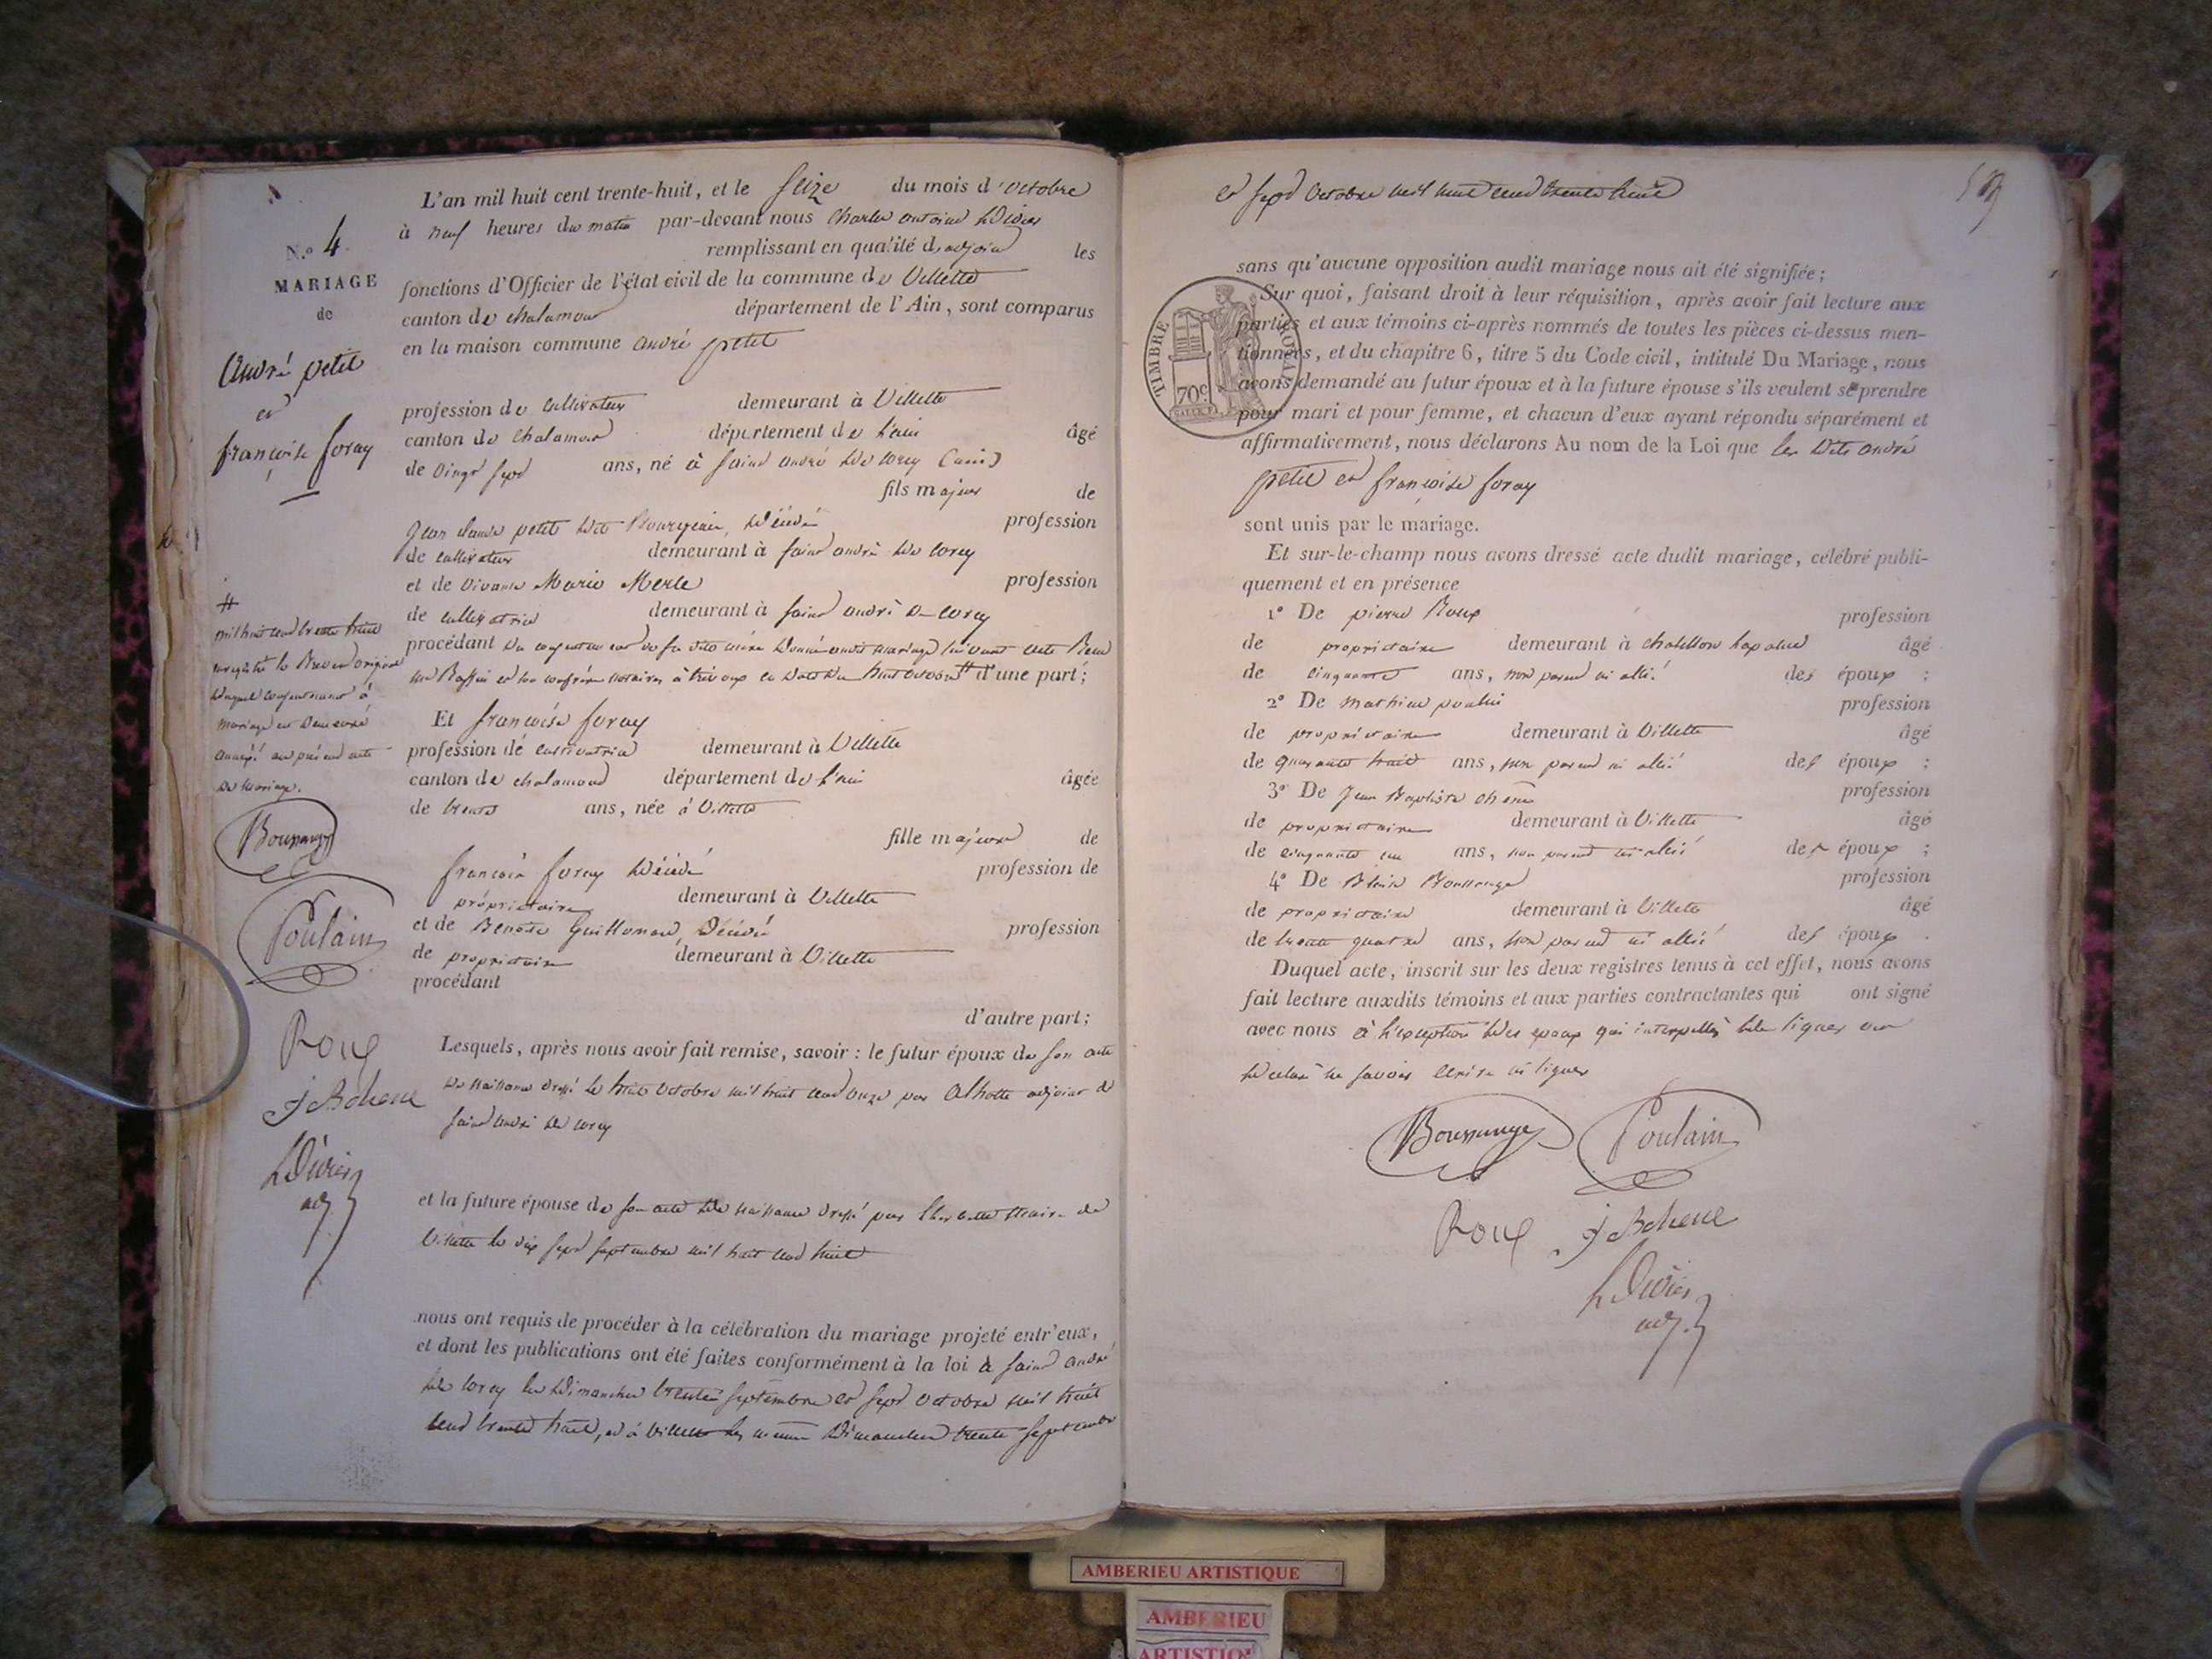 L'an mil huit cent trente-huit, et le seize du mois d'octobre
à neuf heures du matin par-devant nous Charles antoine
remplissant en qualité d'adjoint les
fonctions d'Officier de l'état civil de la commune de Villette
canton de chalamont département de l'Ain, sont comparus
en la maison commune andré petit
N.o 4.
MARIAGE
de
André petit
et
françoise foray
profession de cultivateur demeurant à Villette
canton de Chalamont département de l'ain âgé
de vingt sept ans, né à saint andré de corcy (ain)
fils majeur de
Jean petit dit décédé profession
de cultivateur demeurant à saint andré de corcy
et de vivante Marie Merle profession
de cultivatrice demeurant à saint andré de corcy
procédant du consentement de sa dite mère mariage suivant acte
et son confrère notaires à trévoux en date du huit octobre # d'une part;
#
mil huit cent trente huit
enregistré le Brevet original
duquel consentement à
mariage est demeuré
annexé au présent acte
de mariage.
Boussange
Poulain
Roux
J B chene
adj.
Et françoise foray
profession de cultivatrice demeurant à Villette
canton de chalamont département de l'ain âgée
de trente ans, née à Villette
fille majeure de
françois foray décédé profession de
propriétaire demeurant à Villette
et de Benoite Guillomard, décédée profession
de propriétaire demeurant à Villette
procédant
d'autre part;
Lesquels, après nous avoir fait remise, savoir : le futur époux de son acte
de naissance dressé le huit octobre mil huit cent onze par adjoint de
saint andré de corcy
et la future épouse de son acte de naissance dressé par maire de
Villette le dix sept septembre mil huit cent huit
nous ont requis de procéder à la célébration du mariage projeté entr'eux,
et dont les publications ont été faites conformément à la loi à saint andré
de corcy les dimanches trente septembre et sept octobre mil huit
cent trente huit, et à Villette les mêmes dimanches trente septembre
et sept octobre mil huit cent trente huit
sans qu'aucune opposition audit mariage nous ait été signifiée;
Sur quoi, faisant droit à leur réquisition, après avoir fait lecture aux
parties et aux témoins ci-après nommés de toutes les pièces ci-dessus men-
tionnées, et du chapitre 6, titre 5 du Code civil, intitulé Du Mariage, nous
avons demandé au futur époux et à la future épouse s'ils veulent se prendre
pour mari et pour femme, et chacun d'eux ayant répondu séparément et
affirmativement, nous déclarons Au nom de la Loi que les dits andré
petit et françoise foray
TIMBRE ROYAL
70c
sont unis par le mariage.
Et sur-le-champ nous avons dressé acte dudit mariage, célébré publi-
quement et en présence
1o De pierre Roux profession
de propriétaire demeurant à chatillon lapalud âgé
de cinquante ans, non parent ni allié des époux ;
2o De mathieu poulain profession
de propriétaire demeurant à Villette âgé
de quarante huit ans, non parent ni allié des époux ;
3o De Jean Baptiste chêne profession
de propriétaire demeurant à Villette âgé
de cinquante un ans, non parent ni allié des époux ;
4o De Boussange profession
de propriétaire demeurant à Villette âgé
de trente quatre ans, non parent ni allié des époux .
Duquel acte, inscrit sur les deux registres tenus à cet effet, nous avons
fait lecture auxdits témoins et aux parties contractantes qui ont signé
avec nous à l'exception des epoux qui interpellés de signer ont
declaré ne savoir écrire ni signer
Boussange Poulain
Roux J B chene
adj.
AMBERIEU ARTISTIQUE
AMBERIEU
ARTISTIQU